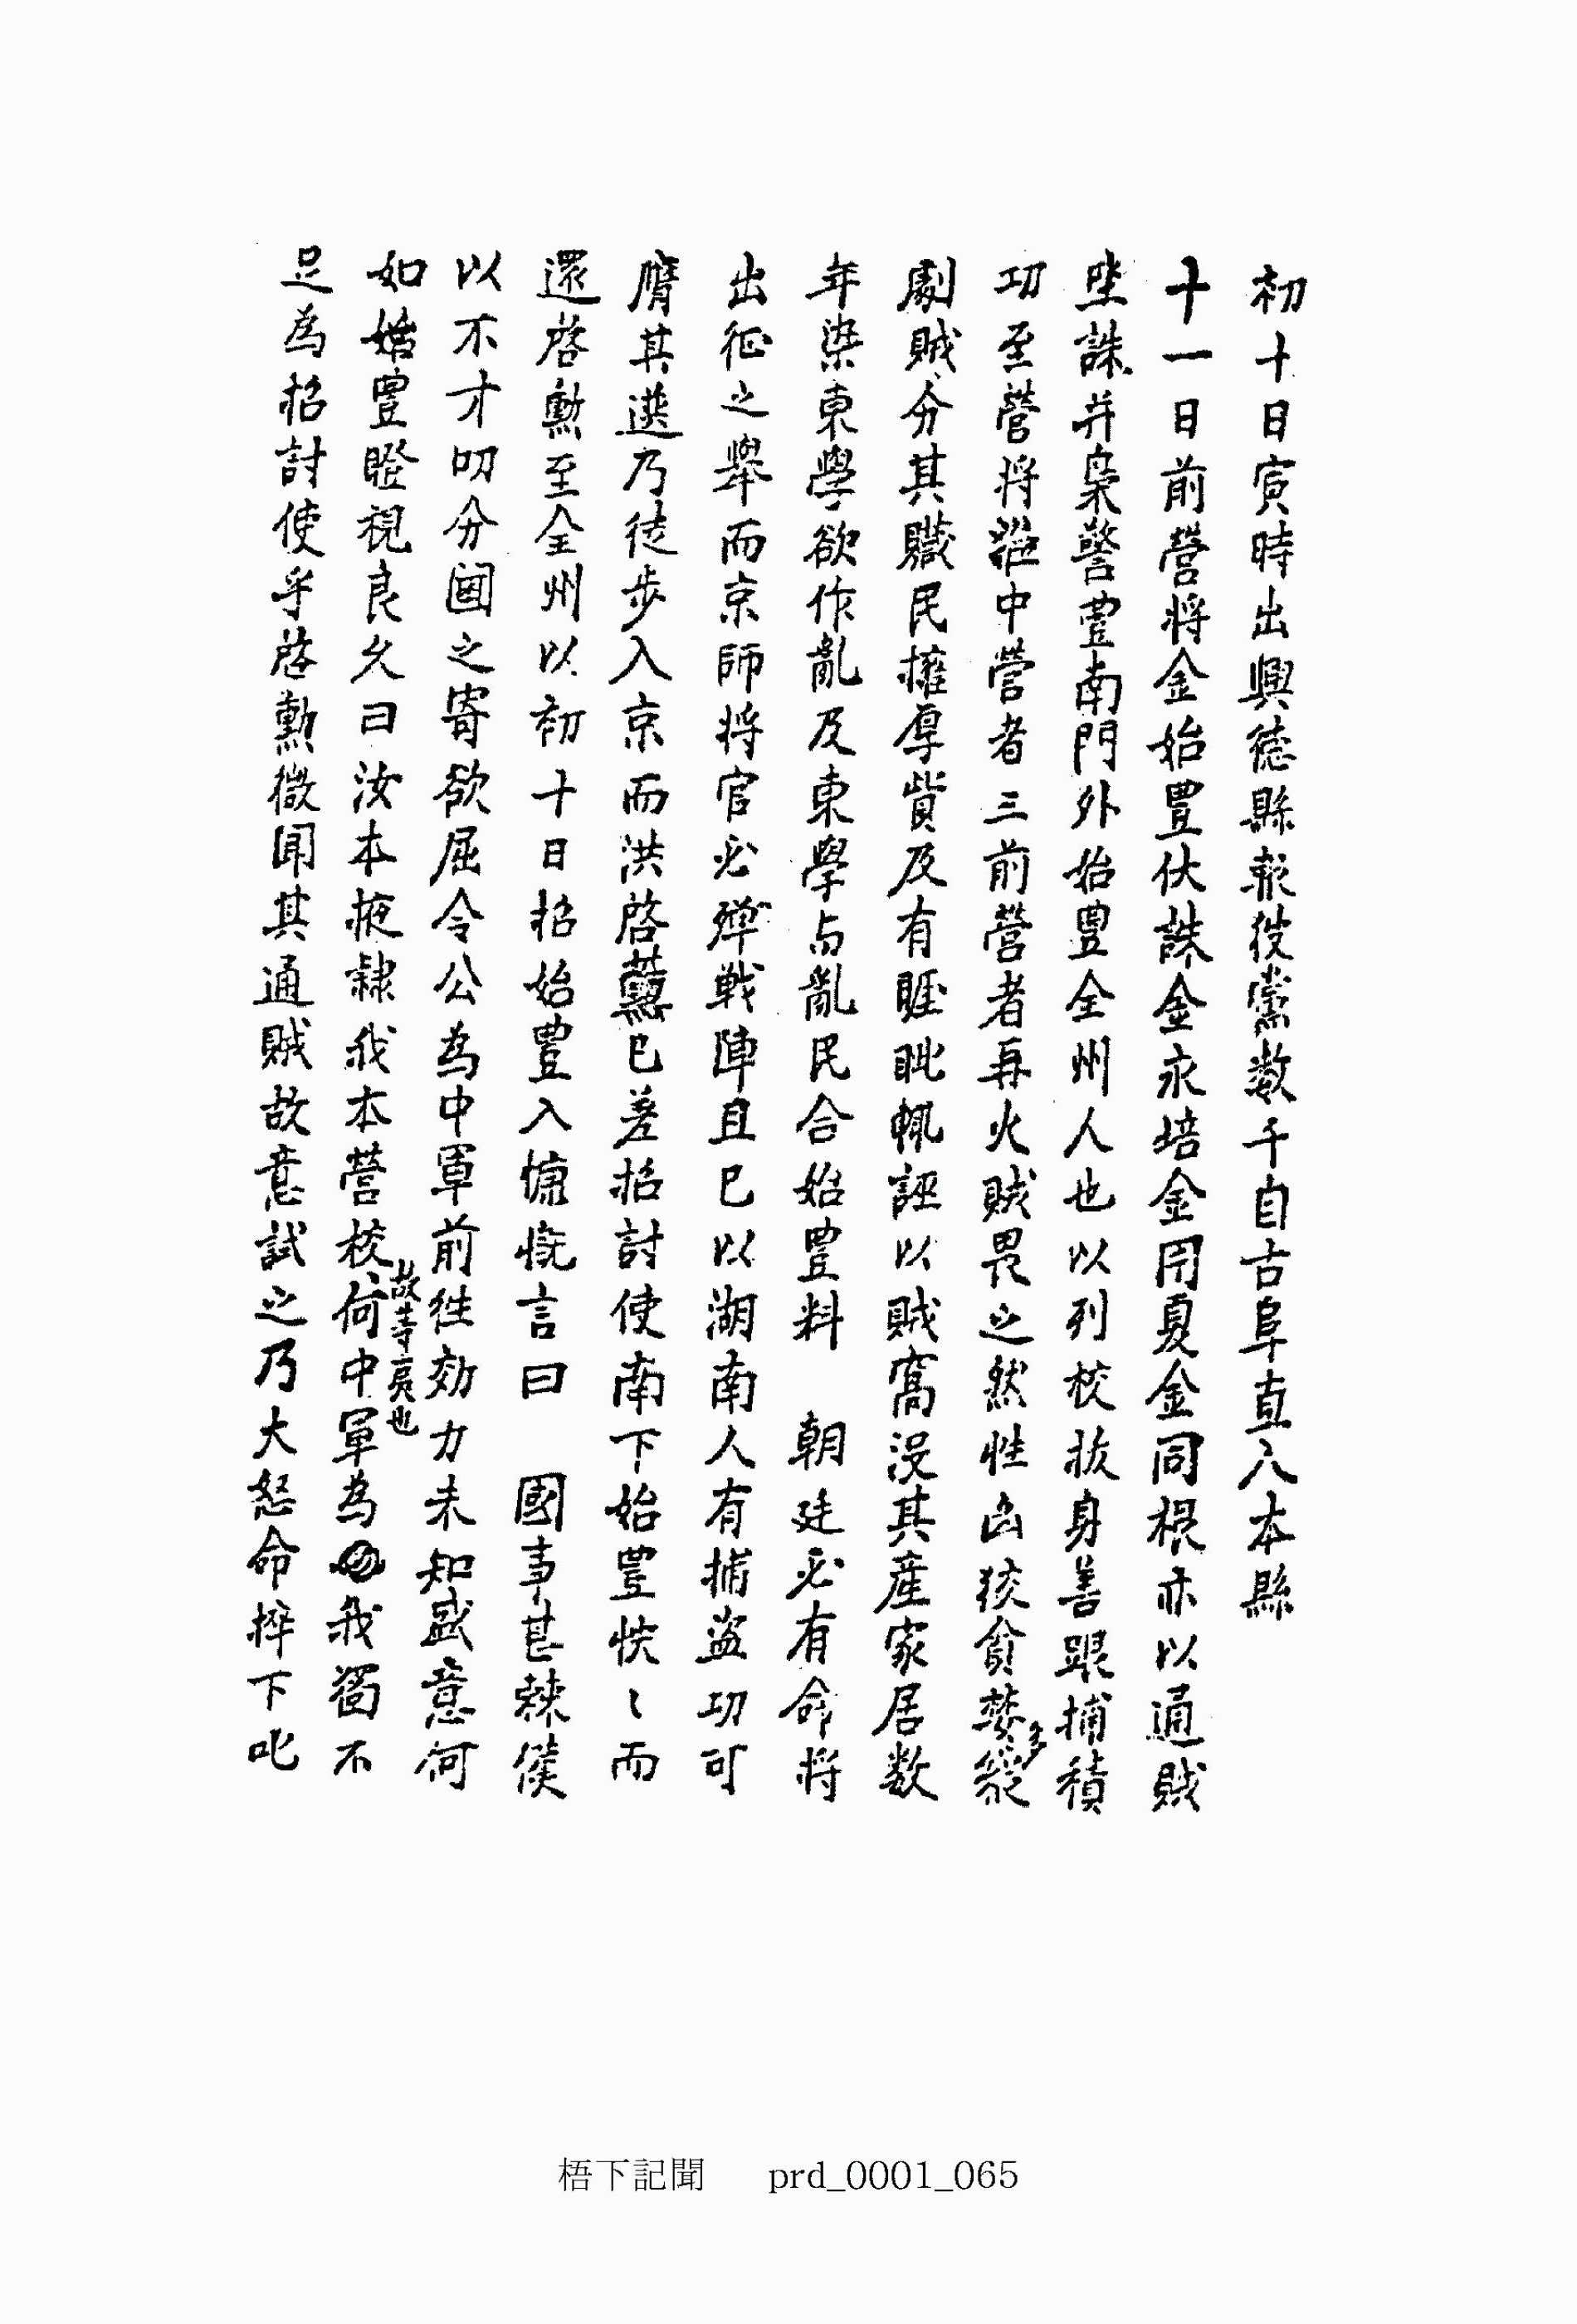 初十日寅時出興德縣報彼黨数千自古阜直入本縣
十一日前營将金始豊伏誅金永培金用夏金同根亦以通賊
坐誅并梟警豊南門外始豊全州人也以列校拔身善跟捕積
功至營将涖中營者三前營者再火賊畏之然性凶狡貪婪多縱
劇賊分其贓民擁厚貲及有睚眦輒誣以賊窩没其産家居数
年染東學欲作亂及東學与亂民合始豊料 朝廷必有命将
出征之舉而京師将官必殫戦陣且已以湖南人有捕盗功可
膺其選乃徒步入京而洪啓薫已差招討使南下始豊怏〻而
還啓勲至全州以初十日招始豊入慷慨言曰 國事甚棘僕
以不才叨分閫之寄欲屈令公為中軍前往効力未知盛意何
如始豊瞪視良久曰汝本掖隷我本營校故寺宾也何中軍為我獨不
足為招討使乎啓勲微聞其通賊故意試之乃大怒命捽下叱
梧下記聞 prd_0001_065